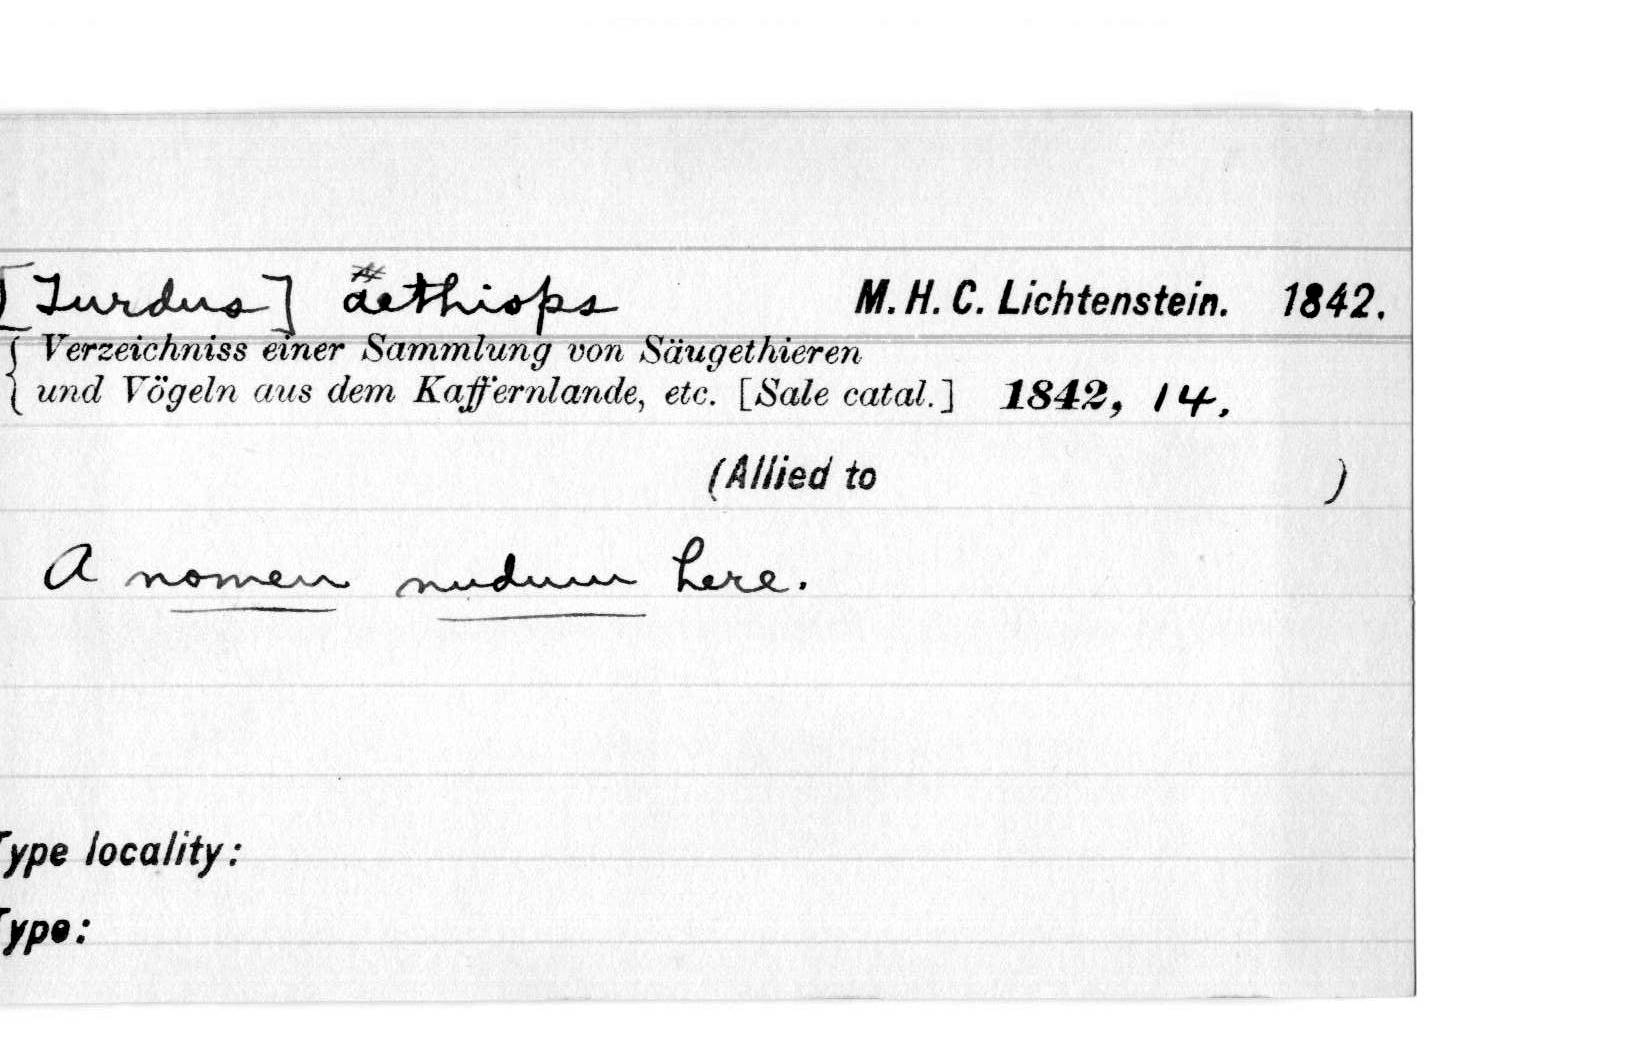 [Turdus] äethiops M. H. C. Lichtenstein. 1842.
{ Verzeichniss einer Sammlung von Säugethieren
und Vögeln aus dem Kaffernlande, etc. [Sale catal.] 1842, 14.
(Allied to )
A nomen nudum here.
Type locality:
Type: